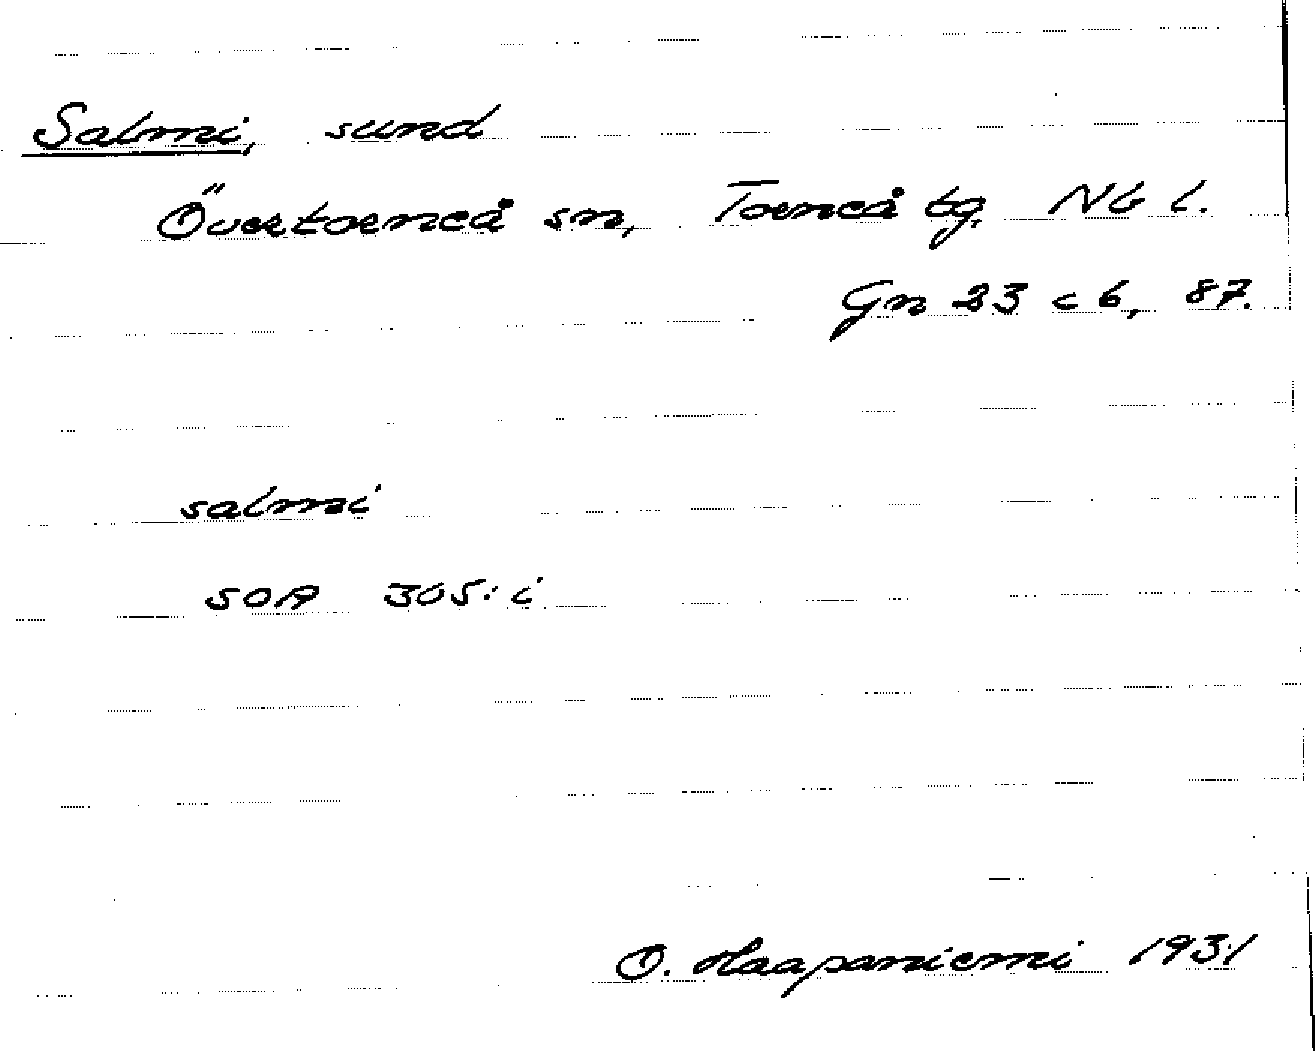 Salmi, sund
Övertorneå sn, Torneå tg. Nb l.
Gn 23 c 6, 87.
salmi
SOA 305: i
O. Haapaniemi 1931